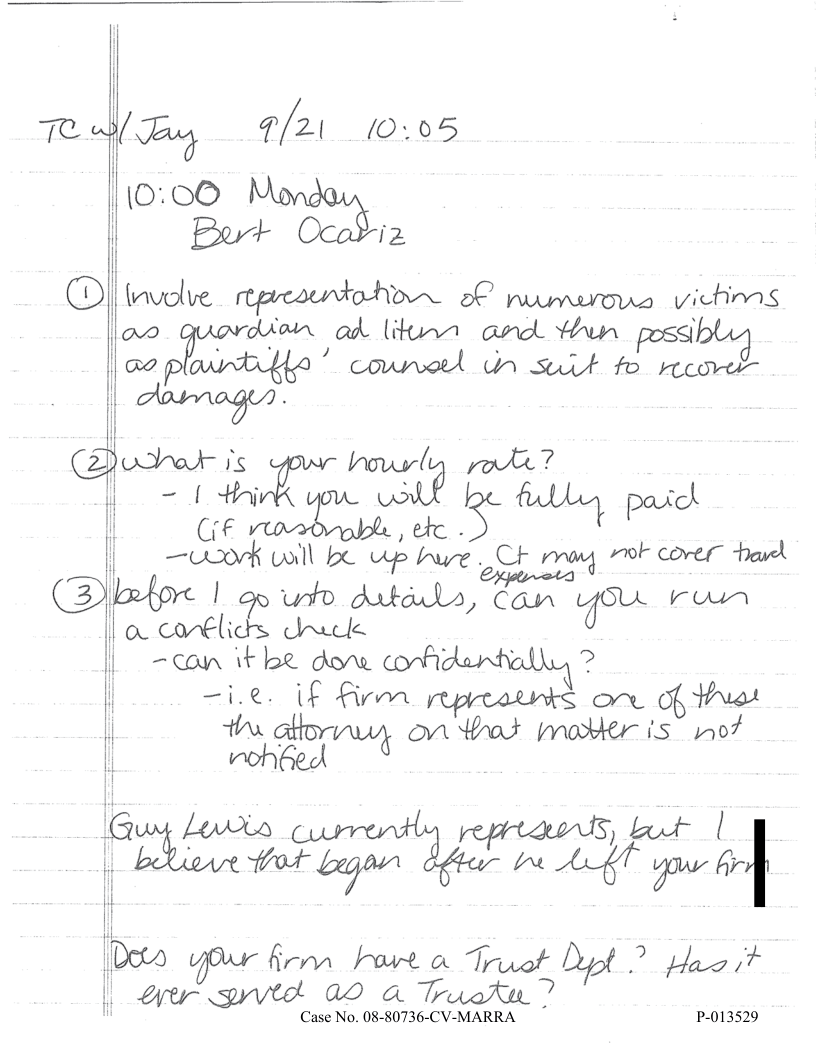 TC w/ Jay 9/21 10:05
10:00 Monday
Bert Ocariz
① Involve representation of numerous victims
as guardian ad litem and then possibly
as plaintiffs' counsel in suit to recover
damages.
② what is your hourly rate?
- I think you will be fully paid
(if reasonable, etc.)
- work will be up here. Ct may not cover travel
expenses
③ before I go into details, can you run
a conflicts check
- can it be done confidentially?
- i.e. if firm represents one of these
the attorney on that matter is not
notified
Guy Lewis currently represents, but I
believe that began after he left your firm
Does your firm have a Trust Dept.? Has it
ever served as a Trustee?
Case No. 08-80736-CV-MARRA P-013529